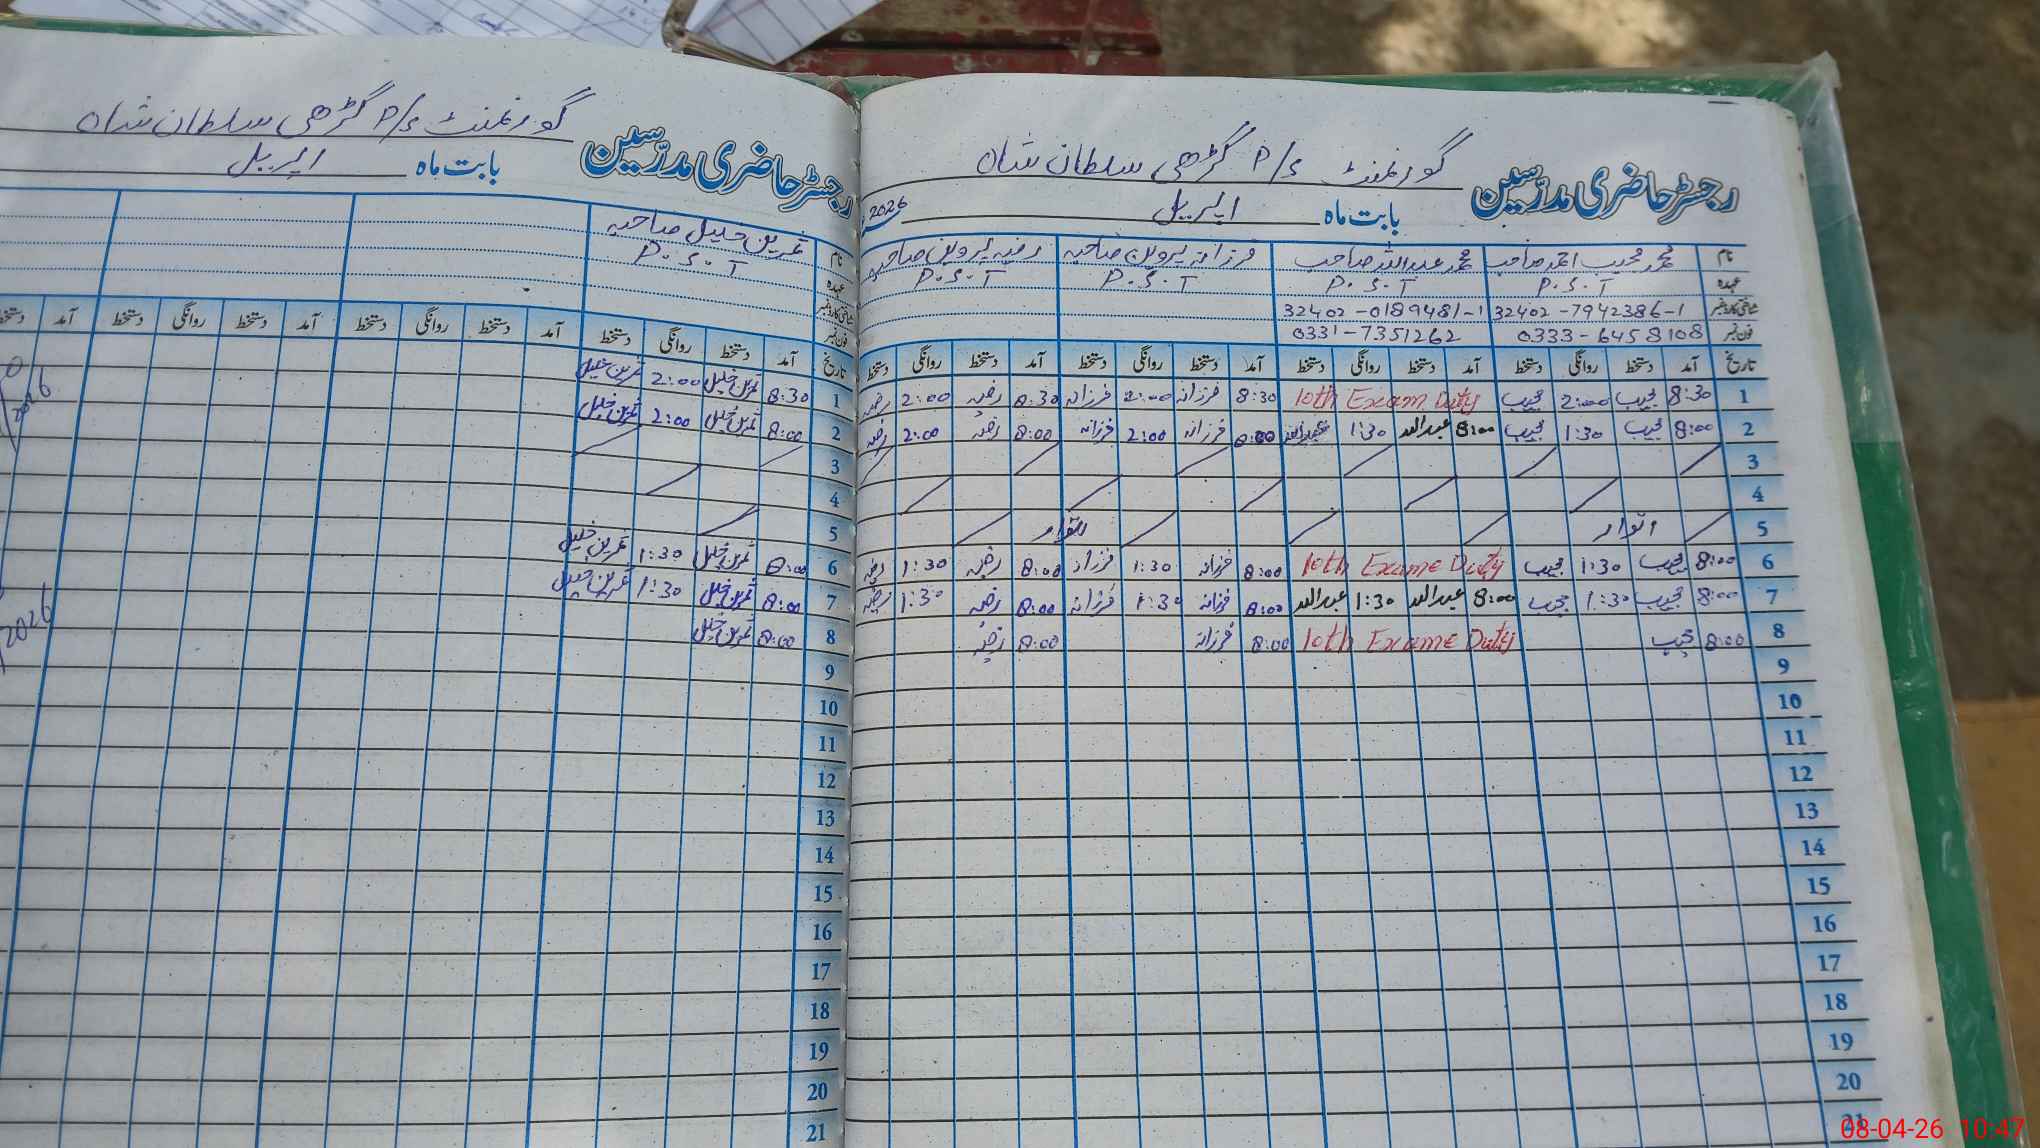 رجسٹر حاضری مدرّسین گورنمنٹ P/S گڑھی سلطان شاہ
بابت ماہ اپریل 2026
نام محمد مجیب احمد صاحب محمد عبداللہ صاحب فرزانہ پروین صاحبہ رضیہ پروین صاحبہ
عہدہ P.S.T P.S.T P.S.T P.S.T
شناختی کارڈ نمبر 32402-7942386-1 32402-0189481-1
فون نمبر 0333-6458108 0331-7351262
تاریخ آمد دستخط روانگی دستخط آمد دستخط روانگی دستخط آمد دستخط روانگی دستخط آمد دستخط روانگی دستخط
1 8:30 مجیب 2:00 مجیب 10th Exam Duty 8:30 فرزانہ 2:00 فرزانہ 8:30 رضیہ 2:00 رضیہ
2 8:00 مجیب 1:30 مجیب 8:00 عبداللہ 1:30 عبداللہ 8:00 فرزانہ 2:00 فرزانہ 8:00 رضیہ 2:00 رضیہ
3
4
5 اتوار اتوار
6 8:00 مجیب 1:30 مجیب 10th Exame Duty 8:00 فرزانہ 1:30 فرزانہ 8:00 رضیہ 1:30 رضیہ
7 8:00 مجیب 1:30 مجیب 8:00 عبداللہ 1:30 عبداللہ 8:00 فرزانہ 1:30 فرزانہ 8:00 رضیہ 1:30 رضیہ
8 8:00 مجیب 10th Exame Duty 8:00 فرزانہ 8:00 رضیہ
9
10
11
12
13
14
15
16
17
18
19
20
21
رجسٹر حاضری مدرّسین گورنمنٹ P/S گڑھی سلطان شاہ
بابت ماہ اپریل
نام ثمرین خلیل صاحبہ
عہدہ P.S.T
شناختی کارڈ نمبر
فون نمبر
تاریخ آمد دستخط روانگی دستخط آمد دستخط روانگی دستخط آمد دستخط روانگی دستخط آمد دستخط
1 8:30 ثمرین خلیل 2:00 ثمرین خلیل
2 8:00 ثمرین خلیل 2:00 ثمرین خلیل
3
4
5
6 8:00 ثمرین خلیل 1:30 ثمرین خلیل
7 8:00 ثمرین خلیل 1:30 ثمرین خلیل
8 8:00 ثمرین خلیل
9
10
11
12
13
14
15
16
17
18
19
20
21
2026
2026
08-04-26 10:47